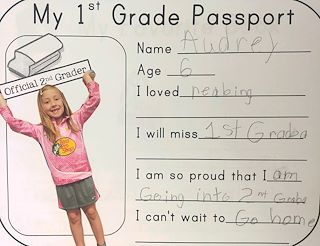 My 1st Grade Passport
Official 2nd Grader
Name Audrey
Age 6
I loved reabing
I will miss 1st Graba
I am so proud that I am
Going into 2nd Graba
I can't wait to Go home